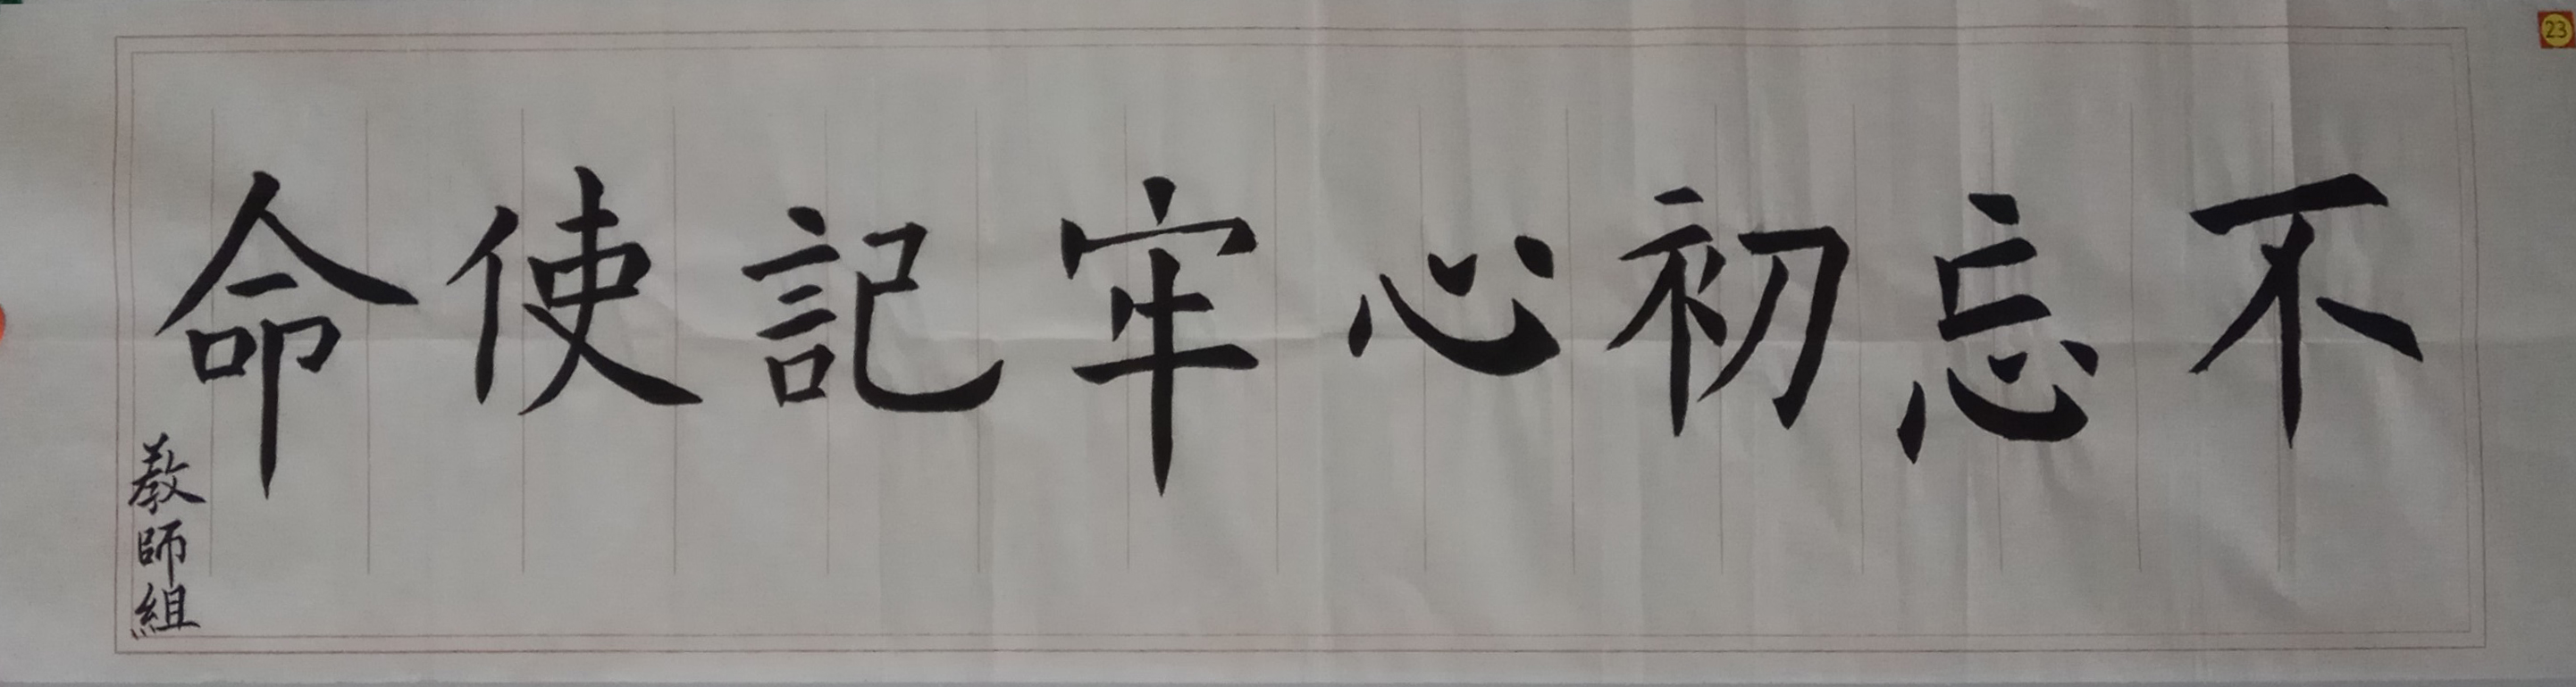 不忘初心牢記使命
教師組
23